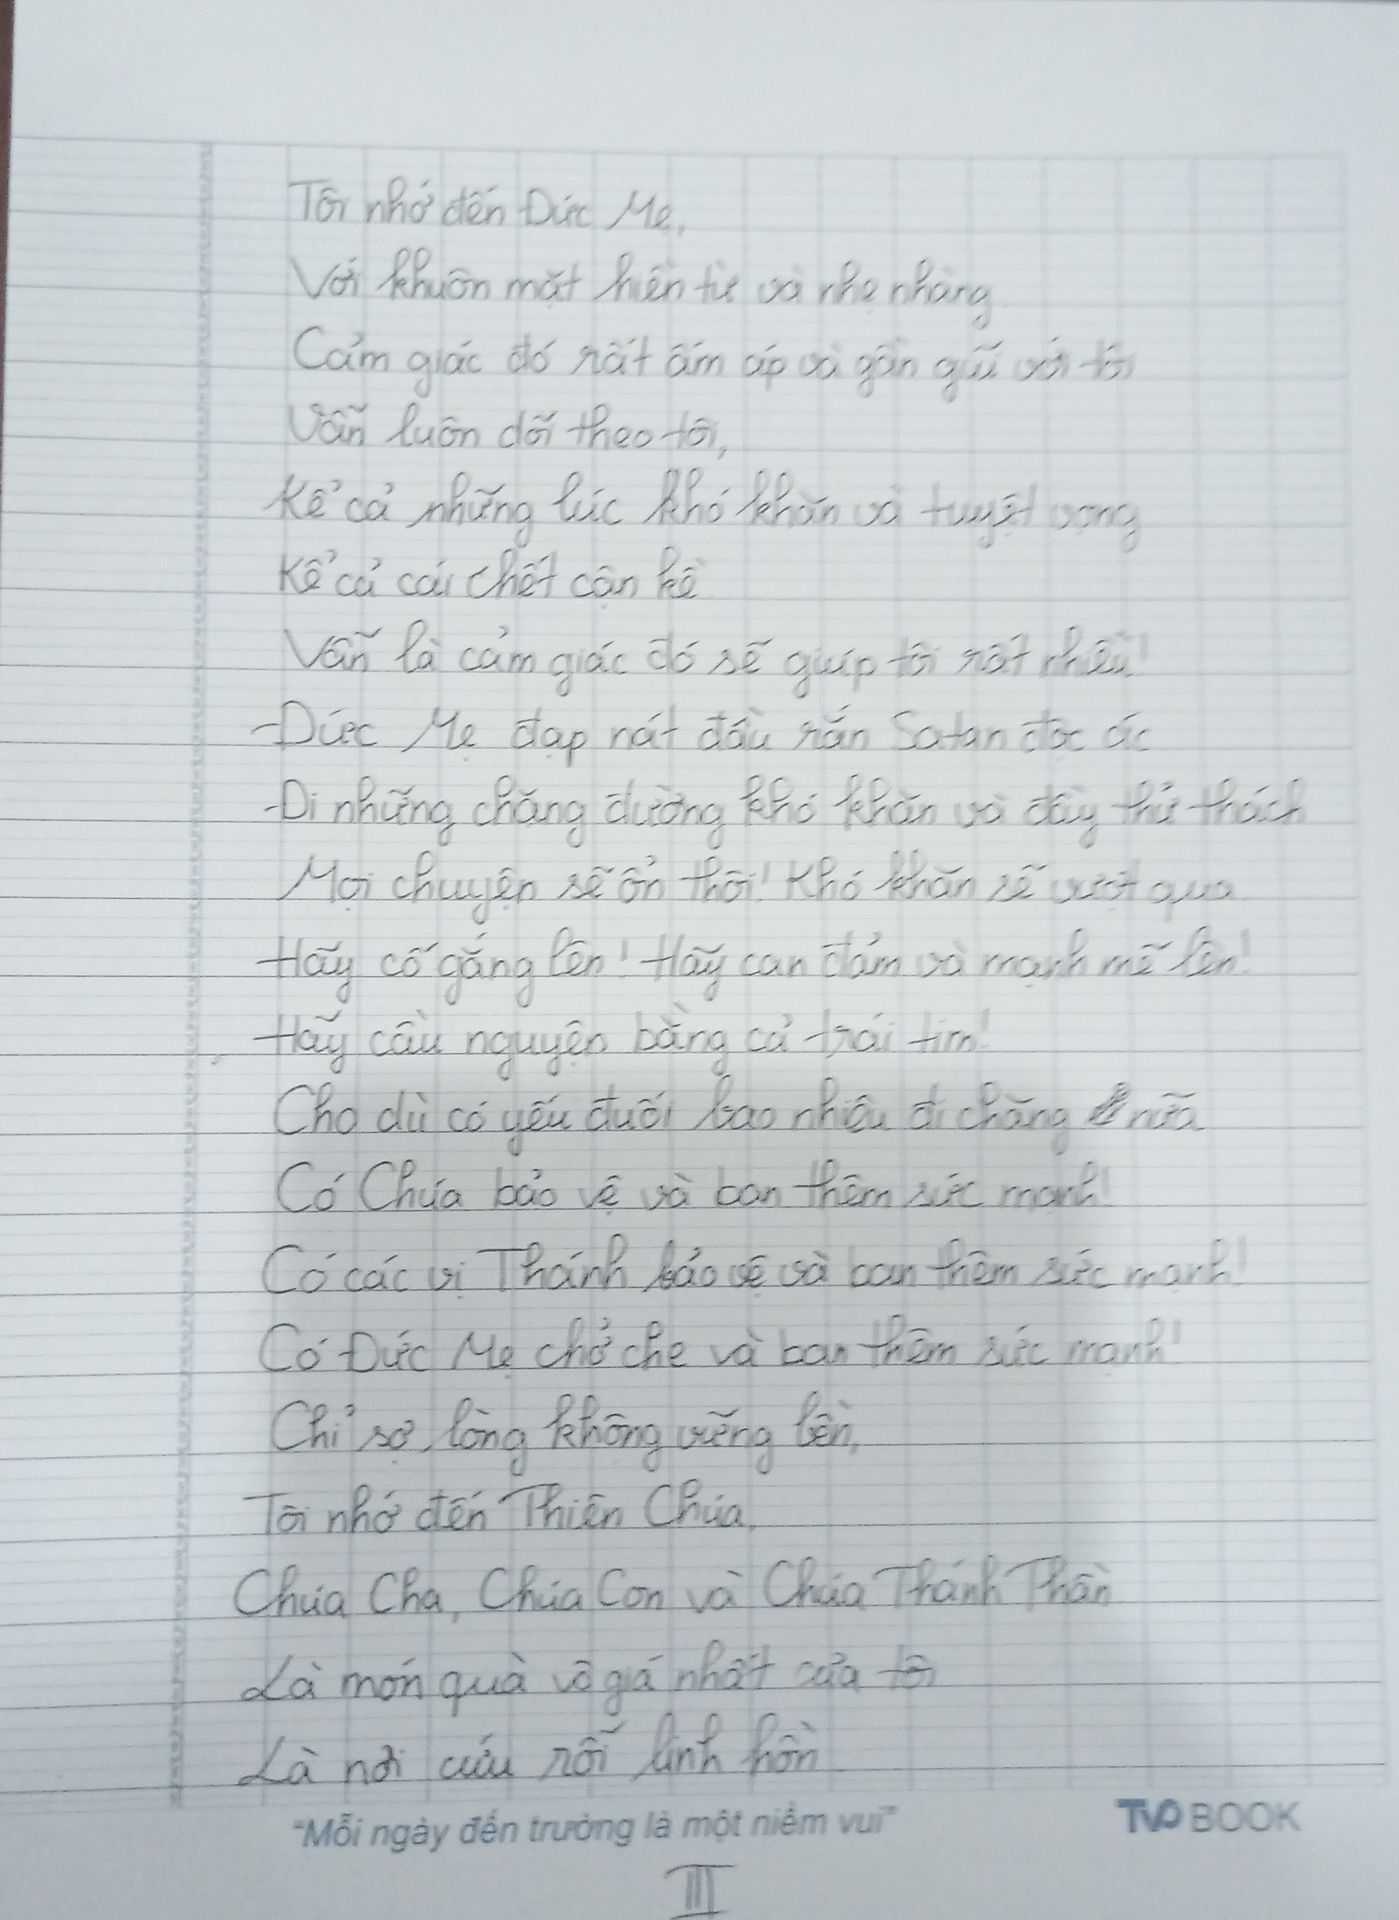 Tôi nhớ đến Đức Mẹ,
Với khuôn mặt hiền từ và nhẹ nhàng
Cảm giác đó rất ấm áp và gần gũi với tôi
Vẫn luôn dõi theo tôi,
Kể cả những lúc khó khăn và tuyệt vọng
Kể cả cái chết cận kề
Vẫn là cảm giác đó sẽ giúp tôi rất nhiều!
Đức Mẹ đạp nát đầu rắn Satan độc ác
Đi những chặng đường khó khăn và đầy thử thách
Mọi chuyện sẽ ổn thôi! Khó khăn sẽ vượt qua
Hãy cố gắng lên! Hãy can đảm và mạnh mẽ lên!
Hãy cầu nguyện bằng cả trái tim!
Cho dù có yếu đuối bao nhiêu đi chăng nữa
Có Chúa bảo vệ và ban thêm sức mạnh!
Có các vị Thánh bảo vệ và ban thêm sức mạnh!
Có Đức Mẹ chở che và ban thêm sức mạnh!
Chỉ sợ lòng không vững bền,
Tôi nhớ đến Thiên Chúa,
Chúa Cha, Chúa Con và Chúa Thánh Thần
Là món quà vô giá nhất của tôi
Là nơi cứu rỗi linh hồn
"Mỗi ngày đến trường là một niềm vui" TVP BOOK
III